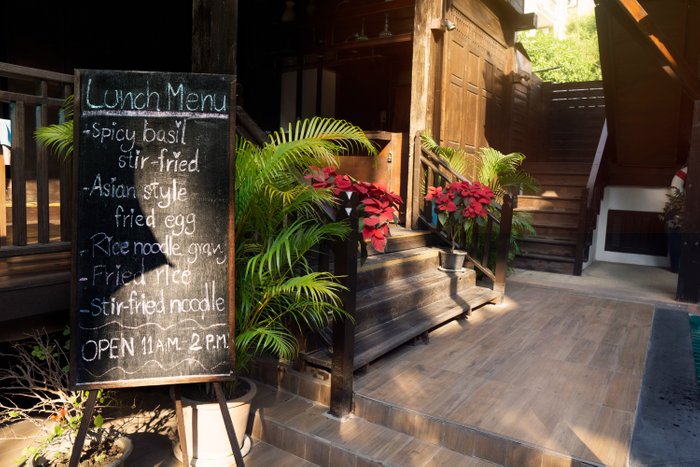 Lunch Menu
-Spicy basil
stir-fried
-Asian style
fried egg
-Rice noodle gravy
-Fried rice
-Stir-fried noodle
OPEN 11 A.M.-2 P.M.